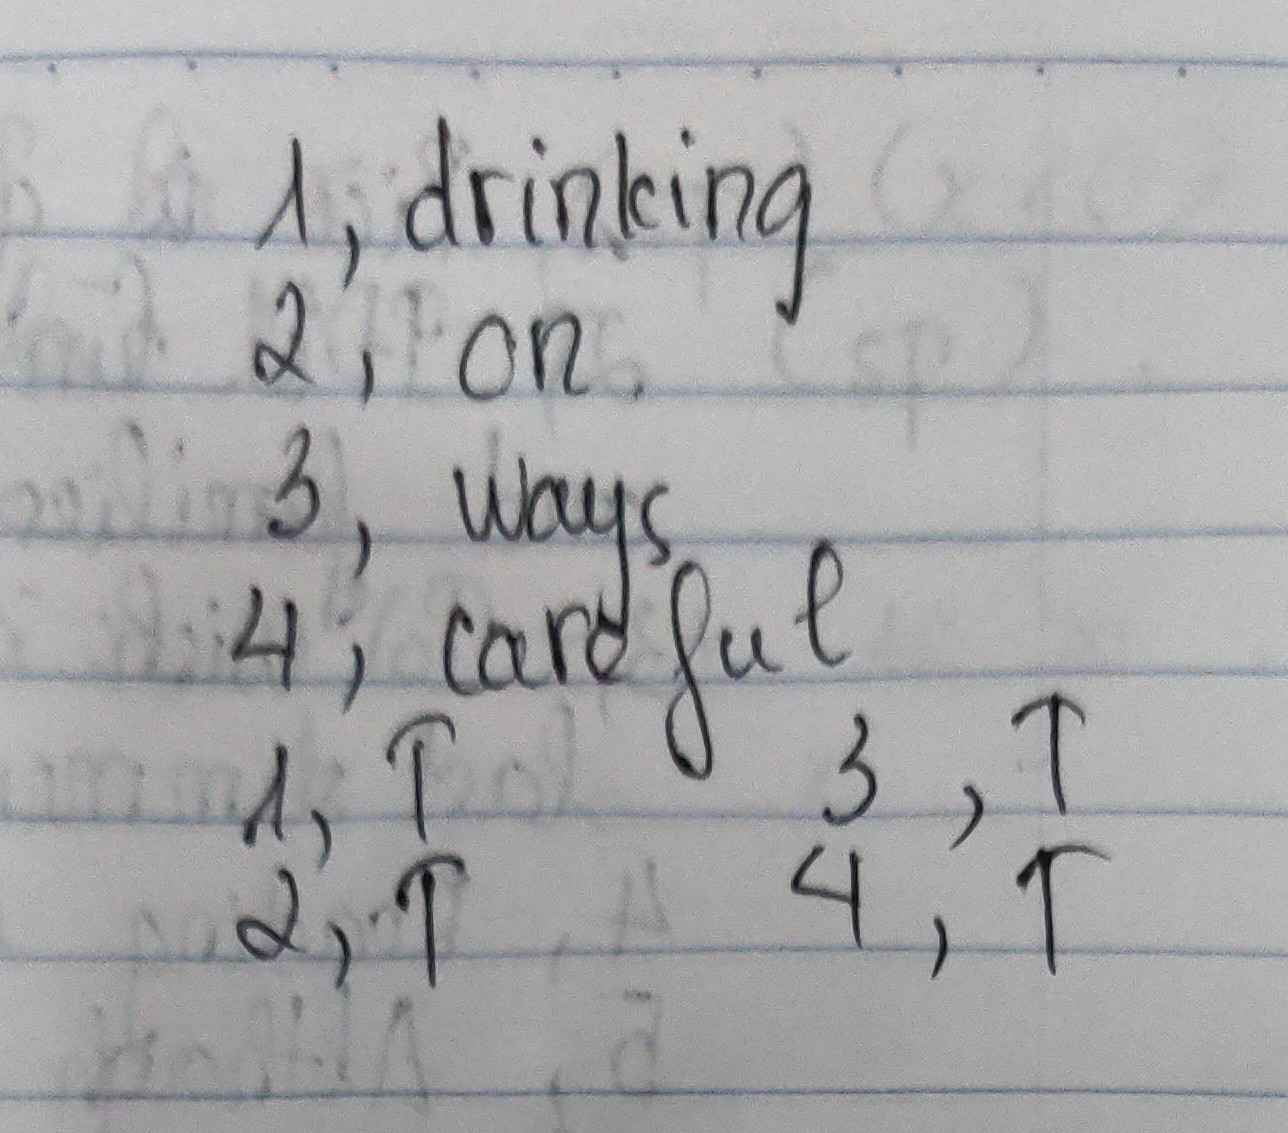 1, drinking
2, on.
3, ways
4, careful
1, T 3, T
2, T 4, T